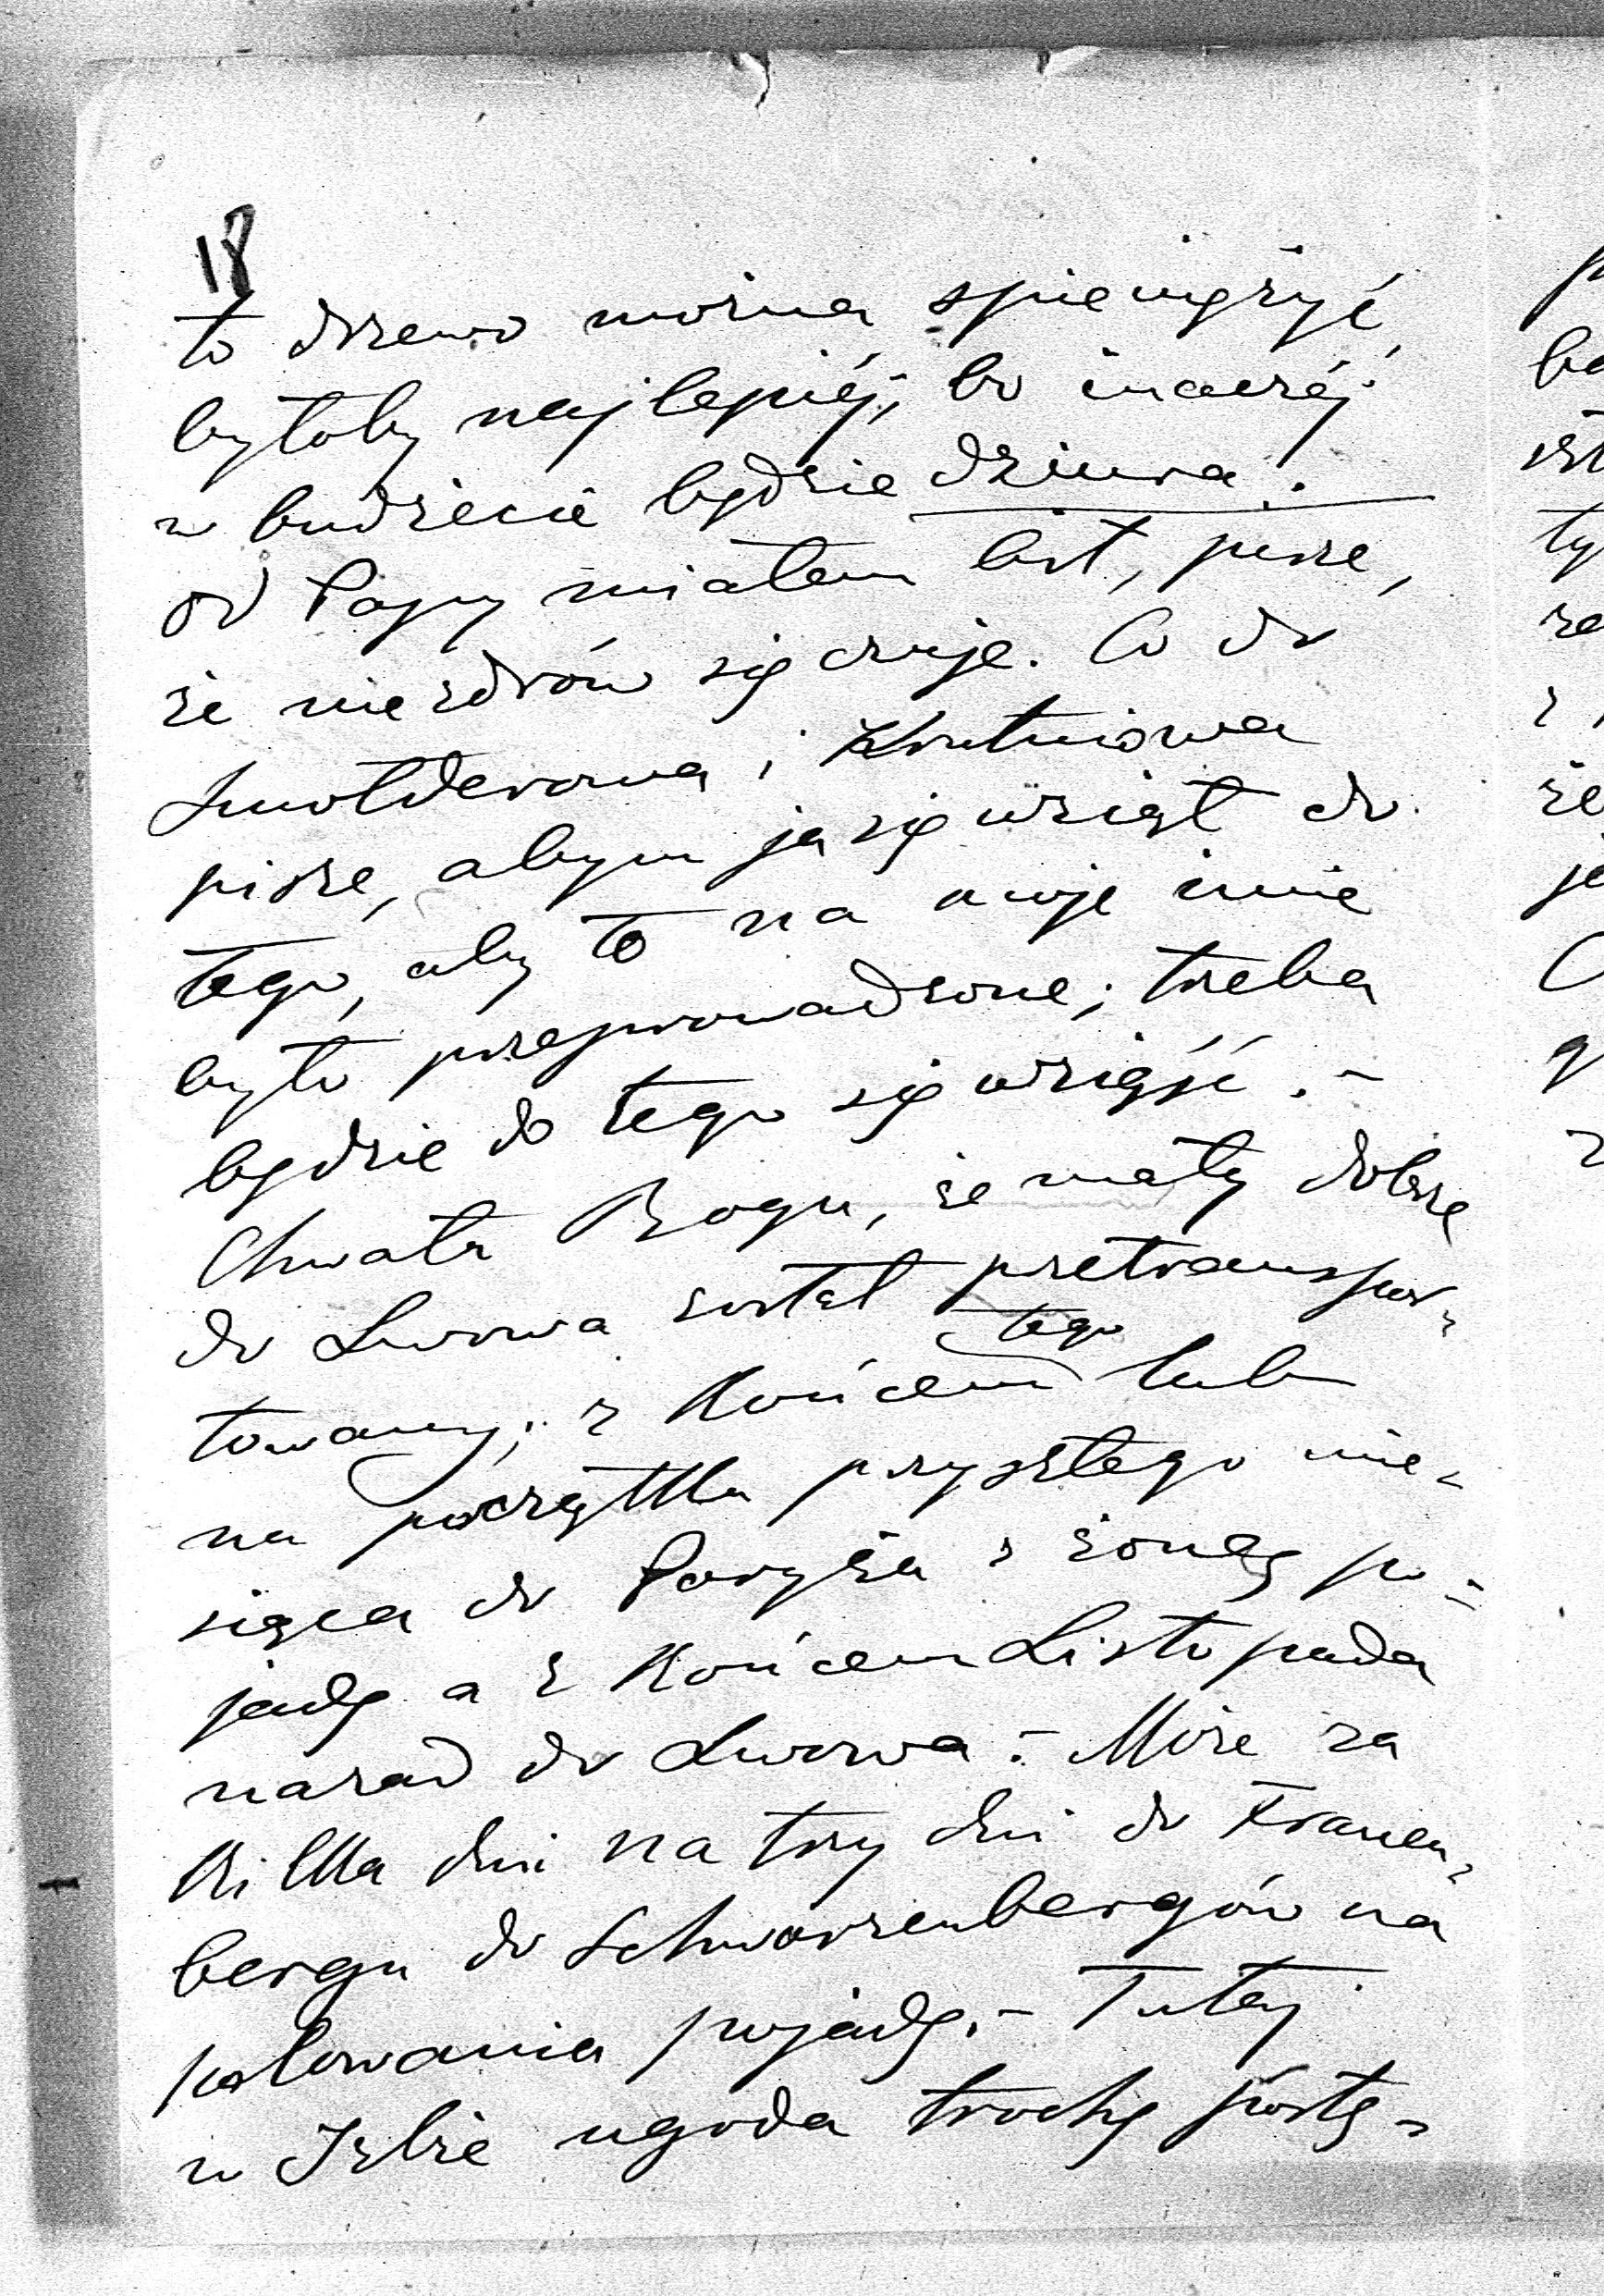 18
to drzewo można spieniężyć,
byłoby najlepiéj, bo inaczéj
w budżecie będzie dziura.
od Papy miałem list, pisze,
że nie zdrów się czuje. Co do
Smołderowa i
pisze, abym ja się wziął do
tego, aby to na moje imie
było przeprowadzone; trzeba
będzie do tego się wziąść. –
Chwała Bogu, że mały dobrze
do Lwowa został przetranspor-
towany; z Końcem tego lub
na początku przyszłego mie-
siąca do Paryża z żoną po-
jadę a z Końcem Listopada
nazad do Lwowa. – Może za
Kilka dni na trzy dni do Frauen-
bergu do Schwarzenbergów na
polowania pojadę. – Tutaj
w Izbie ugoda trochę postę-